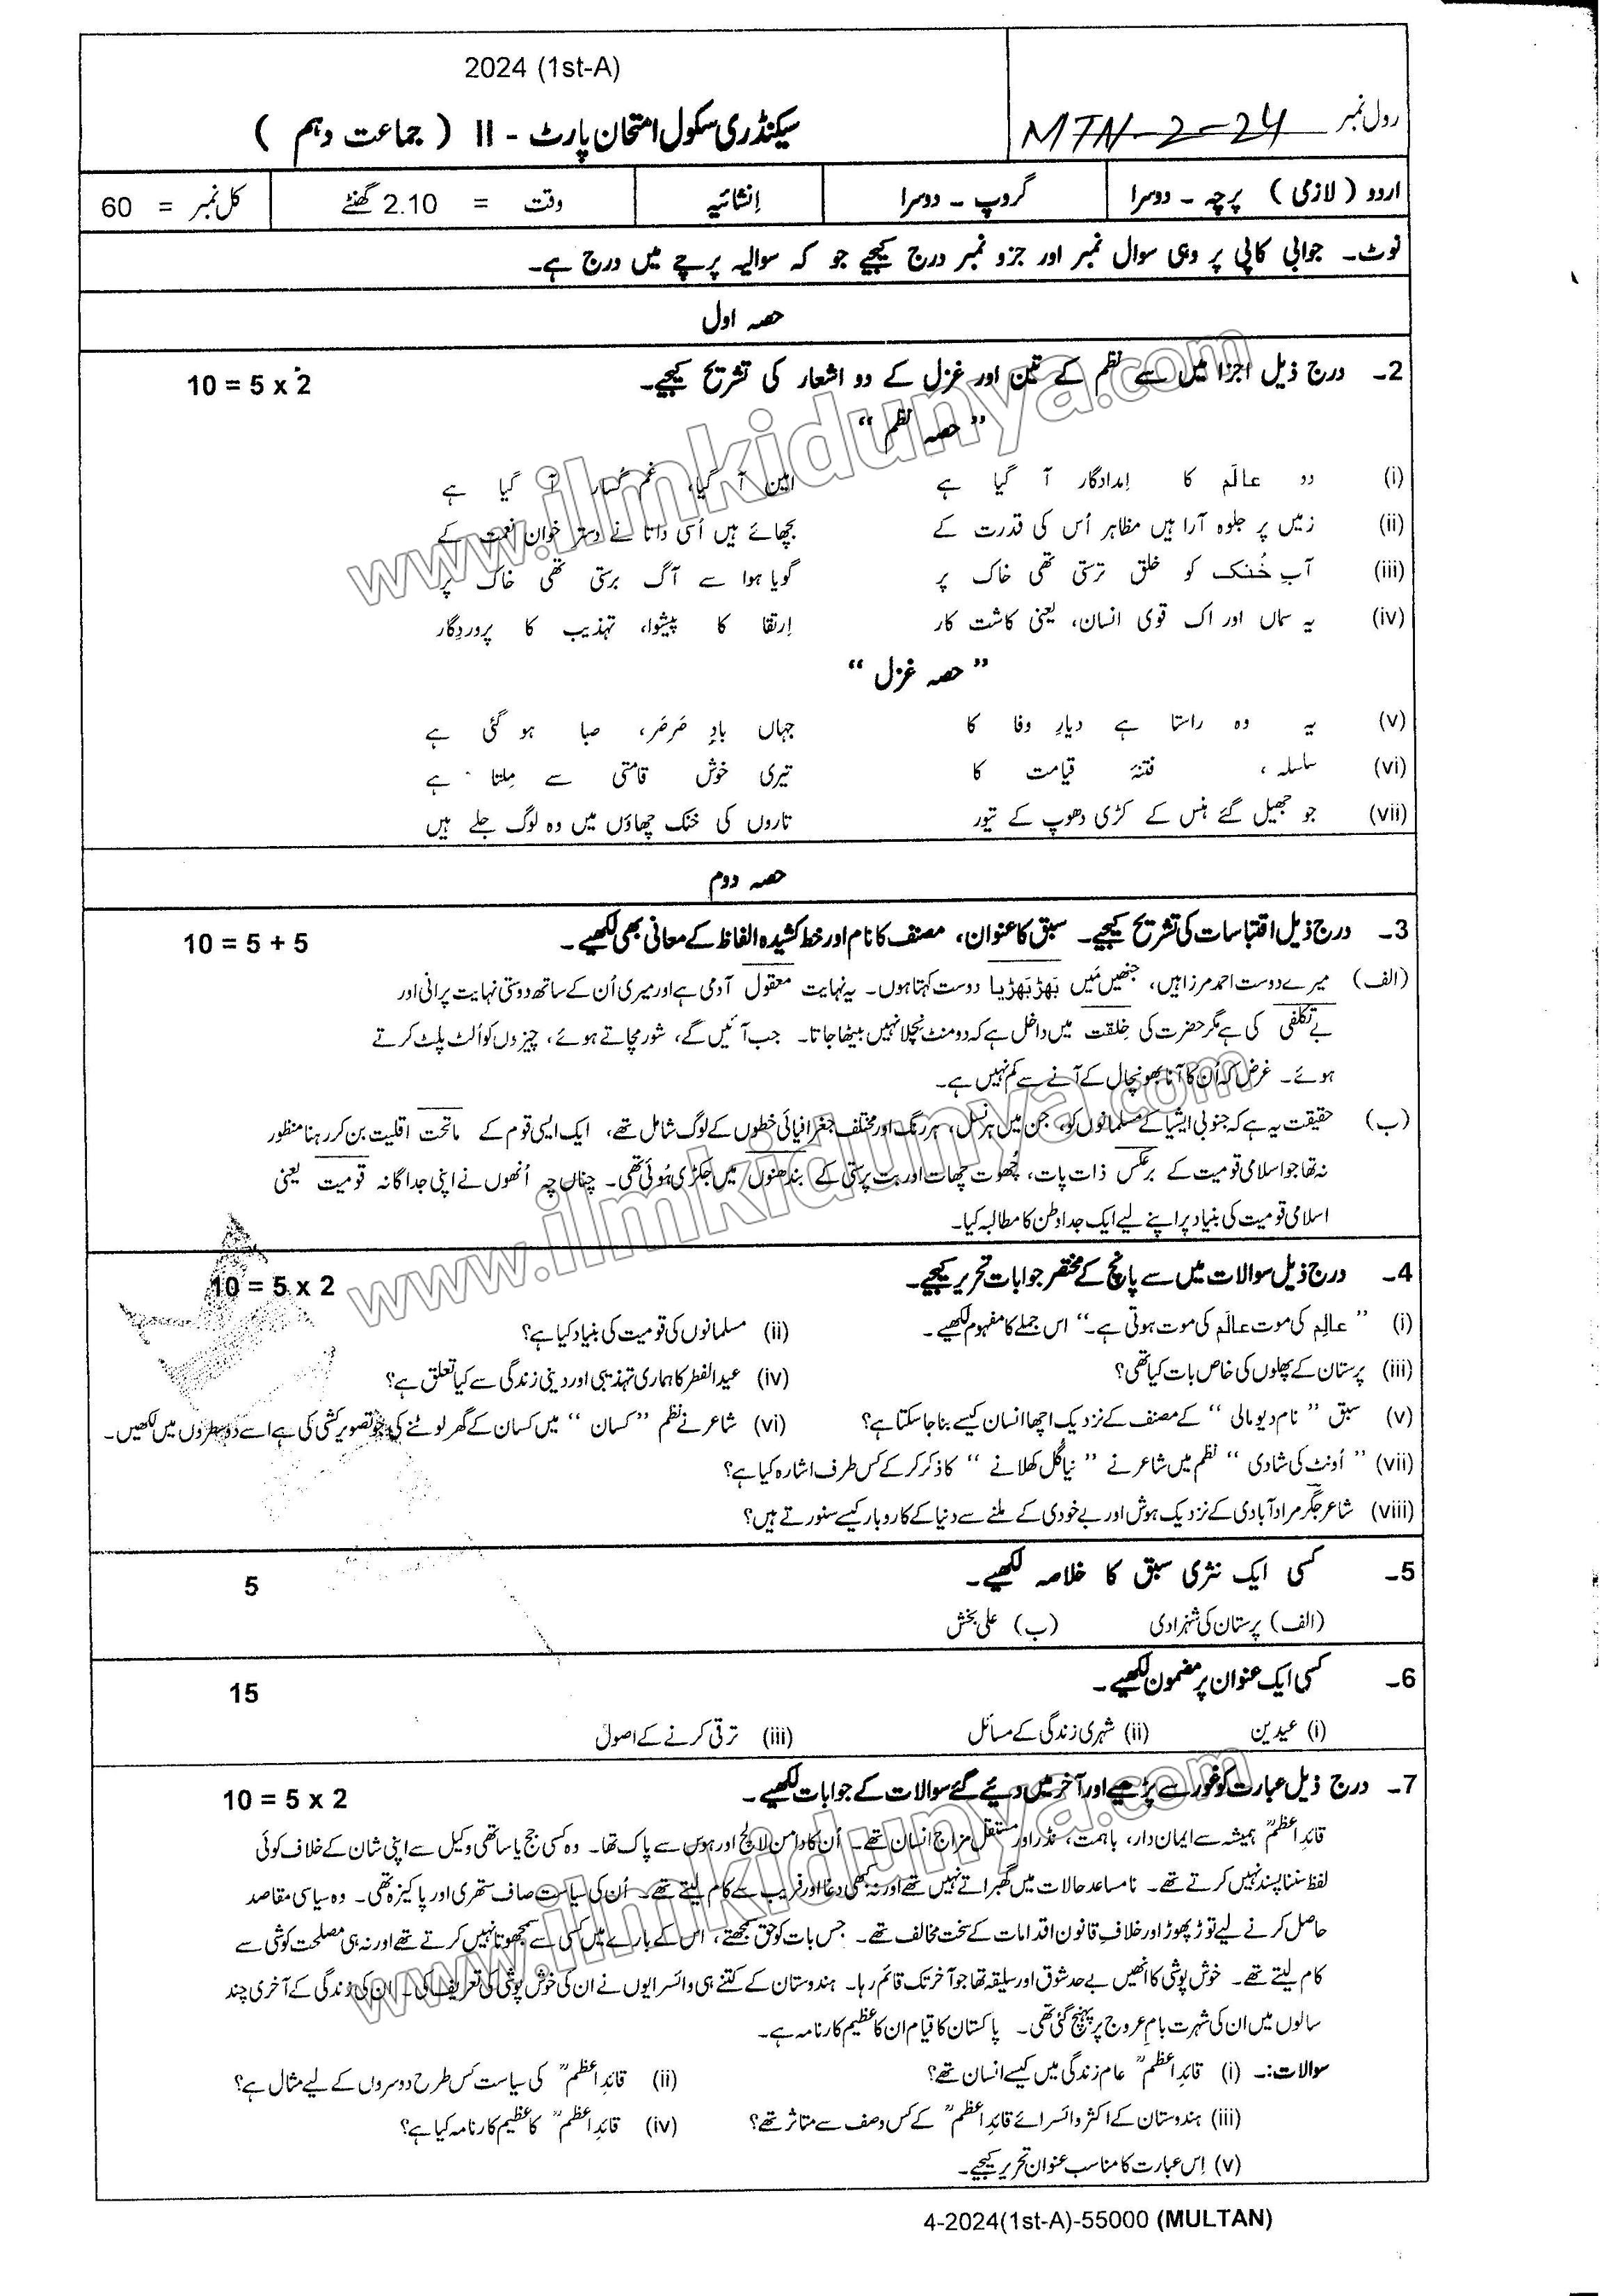 2024 (1st-A)
رول نمبر MTN-2-24
سیکنڈری سکول امتحان پارٹ - II ( جماعت دہم )
اردو ( لازمی ) پرچہ - دوسرا گروپ - دوسرا اِنشائیہ وقت = 2.10 گھنٹے کل نمبر = 60
نوٹ۔ جوابی کاپی پر وہی سوال نمبر اور جزو نمبر درج کیجیے جو کہ سوالیہ پرچے میں درج ہے۔
حصہ اول
2۔ درج ذیل اجزا میں سے نظم کے تین اور غزل کے دو اشعار کی تشریح کیجیے۔ 10 = 5 x 2
” حصہ نظم “
(i) دو عالَم کا اِمدادگار آ گیا ہے امین آ گیا، غم گُسار آ گیا ہے
(ii) زمیں پر جلوہ آرا ہیں مظاہر اُس کی قدرت کے بچھائے ہیں اُسی داتا نے دستر خوان نعمت کے
(iii) آبِ خُنک کو خلق ترستی تھی خاک پر گویا ہوا سے آگ برستی تھی خاک پر
(iv) یہ سماں اور اک قوی انسان، یعنی کاشت کار اِرتقا کا پیشوا، تہذیب کا پروردِگار
” حصہ غزل “
(v) یہ وہ راستا ہے دیارِ وفا کا جہاں بادِ صَرصَر، صبا ہو گئی ہے
(vi) سلسلہ، فتنۂ قیامت کا تیری خوش قامتی سے مِلتا ہے
(vii) جو جھیل گئے ہنس کے کڑی دھوپ کے تیور تاروں کی خنک چھاؤں میں وہ لوگ جلے ہیں
حصہ دوم
3۔ درج ذیل اقتباسات کی تشریح کیجیے۔ سبق کا عنوان، مصنف کا نام اور خط کشیدہ الفاظ کے معانی بھی لکھیے۔ 10 = 5 + 5
(الف) میرے دوست احمد مرزا ہیں، جنھیں مَیں بَھڑبَھڑیا دوست کہتا ہوں۔ یہ نہایت معقول آدمی ہے اور میری اُن کے ساتھ دوستی نہایت پرانی اور
بے تکلفی کی ہے مگر حضرت کی خِلقت میں داخل ہے کہ دو منٹ نچلا نہیں بیٹھا جاتا۔ جب آئیں گے، شور مچاتے ہوئے، چیزوں کو اُلٹ پلٹ کرتے
ہوئے۔ غرض کہ اُن کا آنا بھونچال کے آنے سے کم نہیں ہے۔
(ب) حقیقت یہ ہے کہ جنوبی ایشیا کے مسلمانوں کو، جن میں ہر نسل، ہر رنگ اور مختلف جغرافیائی خطوں کے لوگ شامل تھے، ایک ایسی قوم کے ماتحت اقلیت بن کر رہنا منظور
نہ تھا جو اسلامی قومیت کے برعکس ذات پات، چُھوت چھات اور بت پرستی کے بندھنوں میں جکڑی ہُوئی تھی۔ چناں چہ اُنھوں نے اپنی جداگانہ قومیت یعنی
اسلامی قومیت کی بنیاد پر اپنے لیے ایک جدا وطن کا مطالبہ کیا۔
4۔ درج ذیل سوالات میں سے پانچ کے مختصر جوابات تحریر کیجیے۔ 10 = 5 x 2
(i) ” عالِم کی موت عالَم کی موت ہوتی ہے۔“ اس جملے کا مفہوم لکھیے۔ (ii) مسلمانوں کی قومیت کی بنیاد کیا ہے؟
(iii) پرستان کے پھلوں کی خاص بات کیا تھی؟ (iv) عیدالفطر کا ہماری تہذیبی اور دینی زندگی سے کیا تعلق ہے؟
(v) سبق ” نام دیو مالی “ کے مصنف کے نزدیک اچھا انسان کیسے بنا جا سکتا ہے؟ (vi) شاعر نے نظم ” کسان “ میں کسان کے گھر لوٹنے کی جو تصویر کشی کی ہے اسے دو سطروں میں لکھیں۔
(vii) ” اُونٹ کی شادی “ نظم میں شاعر نے ” نیا گُل کھلانے “ کا ذکر کر کے کس طرف اشارہ کیا ہے؟
(viii) شاعر جگر مراد آبادی کے نزدیک ہوش اور بے خودی کے ملنے سے دنیا کے کاروبار کیسے سنورتے ہیں؟
5۔ کسی ایک نثری سبق کا خلاصہ لکھیے۔ 5
(الف) پرستان کی شہزادی (ب) علی بخش
6۔ کسی ایک عنوان پر مضمون لکھیے۔ 15
(i) عیدین (ii) شہری زندگی کے مسائل (iii) ترقی کرنے کے اصول
7۔ درج ذیل عبارت کو غور سے پڑھیے اور آخر میں دیئے گئے سوالات کے جوابات لکھیے۔ 10 = 5 x 2
قائدِ اعظمؒ ہمیشہ سے ایمان دار، باہمت، نڈر اور مستقل مزاج انسان تھے۔ اُن کا دامن لالچ اور ہوس سے پاک تھا۔ وہ کسی جج یا ساتھی وکیل سے اپنی شان کے خلاف کوئی
لفظ سننا پسند نہیں کرتے تھے۔ نامساعد حالات میں گھبراتے نہیں تھے اور نہ کبھی دغا اور فریب سے کام لیتے تھے۔ اُن کی سیاست صاف ستھری اور پاکیزہ تھی۔ وہ سیاسی مقاصد
حاصل کرنے لیے توڑ پھوڑ اور خلافِ قانون اقدامات کے سخت مخالف تھے۔ جس بات کو حق سمجھتے، اس کے بارے میں کسی سے سمجھوتا نہیں کرتے تھے اور نہ ہی مصلحت کوشی سے
کام لیتے تھے۔ خوش پوشی کا انھیں بے حد شوق اور سلیقہ تھا جو آخر تک قائم رہا۔ ہندوستان کے کتنے ہی وائسرایوں نے ان کی خوش پوشی کی تعریف کی۔ ان کی زندگی کے آخری چند
سالوں میں ان کی شہرت بامِ عروج پر پہنچ گئی تھی۔ پاکستان کا قیام ان کا عظیم کارنامہ ہے۔
سوالات:۔ (i) قائدِ اعظمؒ عام زندگی میں کیسے انسان تھے؟ (ii) قائدِ اعظمؒ کی سیاست کس طرح دوسروں کے لیے مثال ہے؟
(iii) ہندوستان کے اکثر وائسرائے قائدِ اعظمؒ کے کس وصف سے متاثر تھے؟ (iv) قائدِ اعظمؒ کا عظیم کارنامہ کیا ہے؟
(v) اِس عبارت کا مناسب عنوان تحریر کیجیے۔
4-2024(1st-A)-55000 (MULTAN)
www.ilmkidunya.com
www.ilmkidunya.com
www.ilmkidunya.com